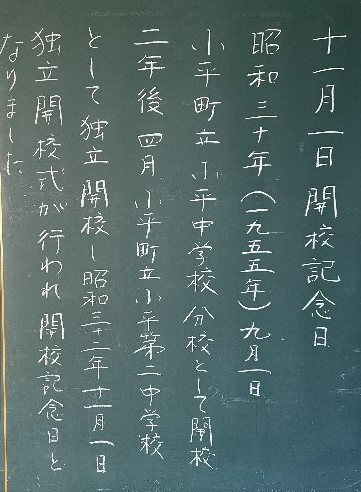 十一月一日 開校記念日
昭和三十年(一九五五年)九月一日
小平町立小平中学校分校として開校
二年後 四月 小平町立小平第二中学校
として独立開校し昭和三十二年十一月一日
独立開校式が行われ 開校記念日と
なりました